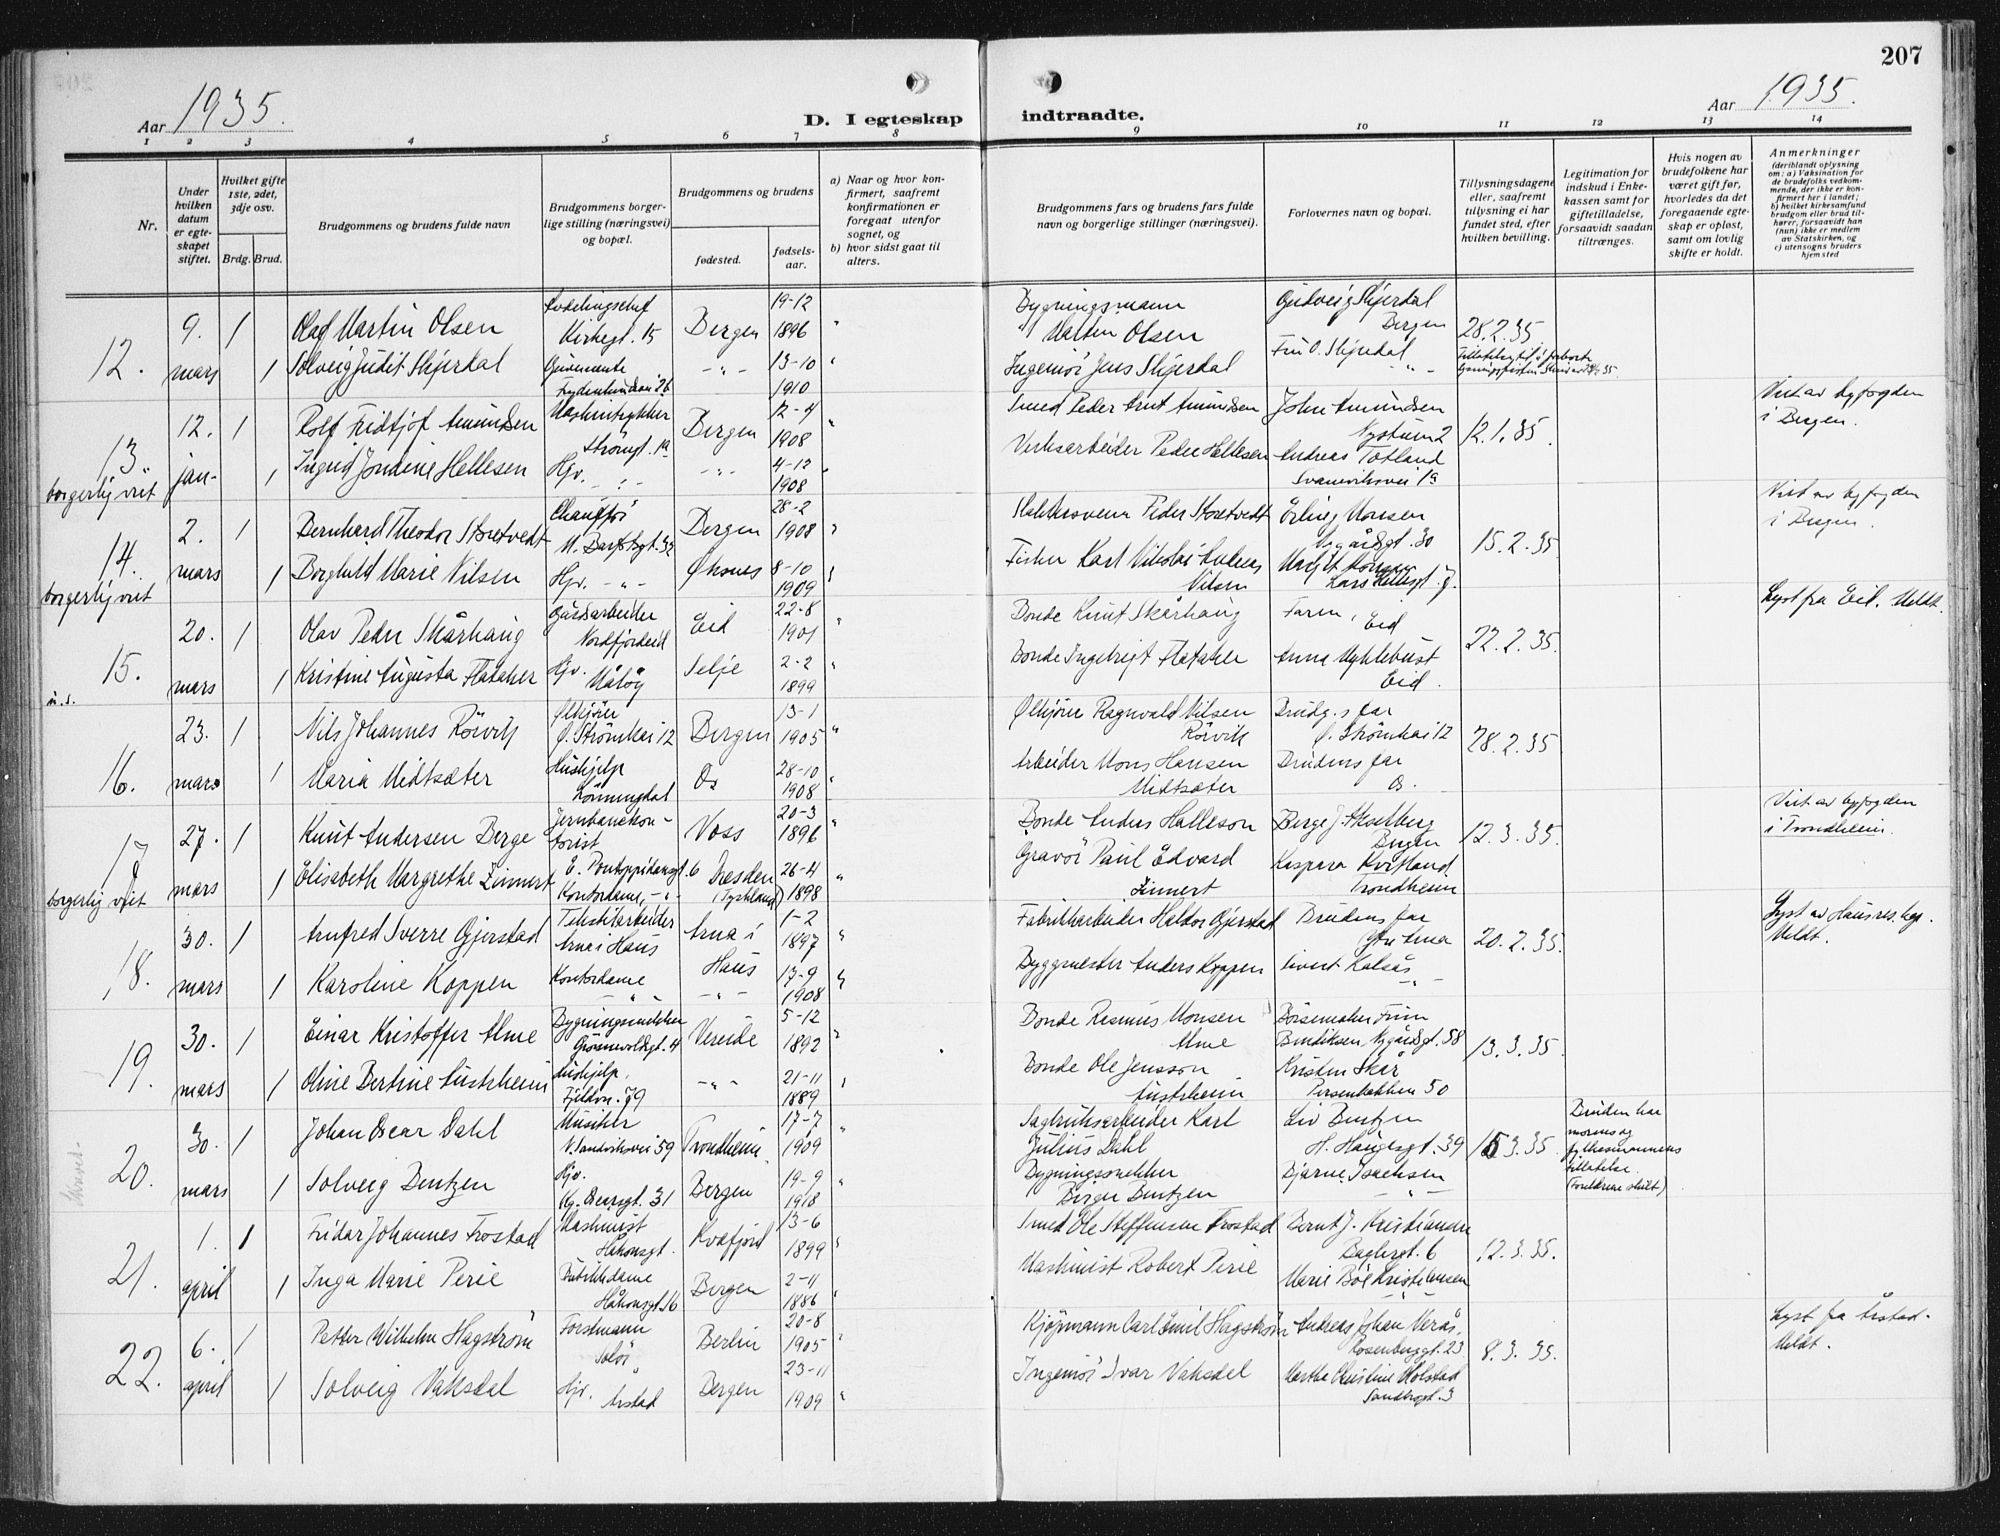 207
Aar 1935.
D. I egteskap indtraadte.
Aar 1935.
1 2 3 4 5 6 7 8 9 10 11 12 13 14
Nr.
Under hvilken datum er egteskapet stiftet.
Hvilket gifte 1ste, 2det, 3dje osv.
Brdg. Brud.
Brudgommens og brudens fulde navn
Brudgommens borgerlige stilling (næringsvei) og bopæl.
Brudgommens og brudens
fødested.
fødselsaar.
a) Naar og hvor konfirmert, saafremt konfirmationen er foregaat utenfor sognet, og
b) hvor sidst gaat til alters.
Brudgommens fars og brudens fars fulde navn og borgerlige stillinger (næringsvei).
Forlovernes navn og bopæl.
Tillysningsdagene eller, saafremt tillysning ei har fundet sted, efter hvilken bevilling.
Legitimation for indskud i Enkekassen samt for giftetilladelse, forsaavidt saadan tiltrænges.
Hvis nogen av brudefolkene har været gift før, hvorledes da det foregaaende egteskap er opløst, samt om lovlig skifte er holdt.
Anmerkninger
(deriblandt oplysning om: a) Vaksination for de brudefolks vedkommende, der ikke er konfirmert her i landet; b) hvilket kirkesamfund brudgom eller brud tilhører, forsaavidt han (hun) ikke er medlem av Statskirken, og c) utensogns bruders hjemsted
12. 9. mars
1 Olaf Martin Olsen Kirkegt. 15 Bergen 19-12 1896 Bygningsmann Martin Olsen Gudveig Skjerdal Bergen 28.2.35.
1 Solveig Judit Skjerdal Guvernante - " - 13-10 1910 Ingeniør Jens Skjerdal Fru O. Skjerdal - " -
13. borgerlig viet 12. jan-
1 Rolf Fridtjof Amundsen Maskintrykker Strömgt. 1a Bergen 12-4 1908 Smed Peder Arnt Amundsen John Amundsen Nystuen 2 12.1.35. Viet av byfogden i Bergen.
1 Ingrid Jondine Hellesen Hjv. - " - - " - 4-12 1908 Verksarbeider Peder Hellesen Andreas Totland Svaneviksvei 1a
14. borgerlig viet 2. mars
1 Bernhard Theodor Storetvedt Chauffør 35 Bergen 28-2 1908 Peder Storetvedt Erling Monsen Nygårdsgt. 30 15.2.35. Viet av byfogden i Bergen.
1 Borghild Marie Nilsen Hjv. - " - Øksnes 8-10 1909 Fisker Karl Nikolai Andreas Nilsen Lars Hillesgt. 7.
15. u.s. 20. mars
1 Olav Peder Skårhaug Gårdsarbeider Nordfjordeid Eid 22-8 1901 Bonde Knut Skårhaug Faren, Eid 22.2.35. Lyst fra Eid. Meldt.
1 Kristine Augusta Flataker Hjv. Måløy Selje 2-2 1899 Bonde Ingebrigt Flataker Anna Myklebust Eid.
16. 23. mars
1 Nils Johannes Rörvik Ølkjörer Ø. Strömkai 12 Bergen 13-1 1905 Ølkjörer Ragnvald Nilsen Rörvik Brudg.s far Ø. Strömkai 12 28.2.35
1 Maria Midtsæter Hushjelp Lönningdal Os 28-10 1908 Arbeider Mons Hansen Midtsæter Brudens far Os.
17. borgerlig viet 27. mars
1 Knut Andersen Berge Jernbanekontorist Voss 20-3 1896 Bonde Anders Halleson Bergen 12.3.35. Viet av byfogden i Trondheim.
1 Elisabeth Margrethe Zinnert E. Pontoppidansgt. 6 Kontordame, - " - Dresden (Tyskland) 26-4 1898 Gravör Paul Edvard Zinnert Kaspara Kvitland Trondheim
18. 30. mars
1 Arnfred Sverre Gjerstad Tekstilarbeider Arna i Haus Arna i Haus 1-2 1897 Fabrikkarbeider Haldor Gjerstad Brudens far Ytre Arna 20.2.35. Lyst av Haus res. kap. Meldt.
1 Karoline Koppen Kontordame - " - - " - 13-9 1908 Byggmester Anders Koppen Sivert Kalsås - " -
19. 30. mars
1 Einar Kristoffer Alme Bygningssnekker 4 Vereide 5-12 1892 Bonde Rasmus Monsen Alme Børsemaker Finn Bendiksen Nygårdsgt. 58 13.3.35.
1 Oline Bertine Austrheim Hushjelp, Fjeldvn. 79 - " - 21-11 1889 Bonde Ole Jensson Austrheim Kristen Skår Persenbakken 50
20. 30. mars
1 Johan Oscar Dahl Musiker N. Sandviksvei 59 Trondheim. 17-7 1909 Sagbruksarbeider Karl Julius Dahl Liv Bentzen H. Haugesgt. 39 15.3.35. Bruden har morens og fylkesmannens tillatelse. (Foreldrene skilt)
1 Solveig Bentzen Hjv. Kg. Oscarsgt. 31 Bergen 19-9 1918 Bygningssnekker Birger Bentzen Bjarne Isachsen - " -
21. 1. april
1 Fridar Johannes Frostad Maskinist Håkonsgt. Kvæfjord 13-6 1899 Smed Ole Steffensen Frostad Bernt J. Kristiansen Baglergt. 6 12.3.35.
1 Inga Marie Perie Butikkdame Håkonsgt. 16 Bergen 2-11 1886 Maskinist Robert Perie Marie Böe Kristiansen - " -
22. 6. april
1 Petter Wilhelm Hagström Forstmann Solör Berlin 20-8 1905 Kjøpmann Carl Emil Hagström Andreas Johan Verås, Rosenbergsgt. 23 8.3.35. Lyst fra Årstad. Meldt.
1 Solveig Vaksdal Hjv. Årstad Bergen 23-11 1909 Ingeniör Ivar Vaksdal Martha Christine Molstad